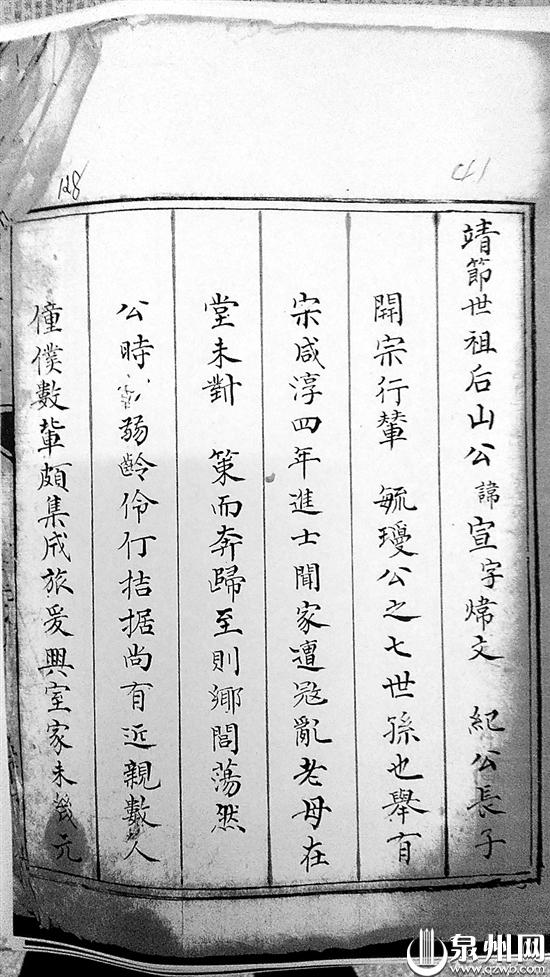 128
41
靖節世祖后山公諱宣字煒文 紀公長子
開宗行輦 毓璦公之七世孫也舉有
宋咸淳四年進士聞家遭冦亂老母在
堂未對 策而奔歸至則鄉閭蕩然
公時弱齡伶仃拮据尚有近親數人
僮僕數輩頗集成旅爰興室家未幾元
泉州网
www.qzwb.com